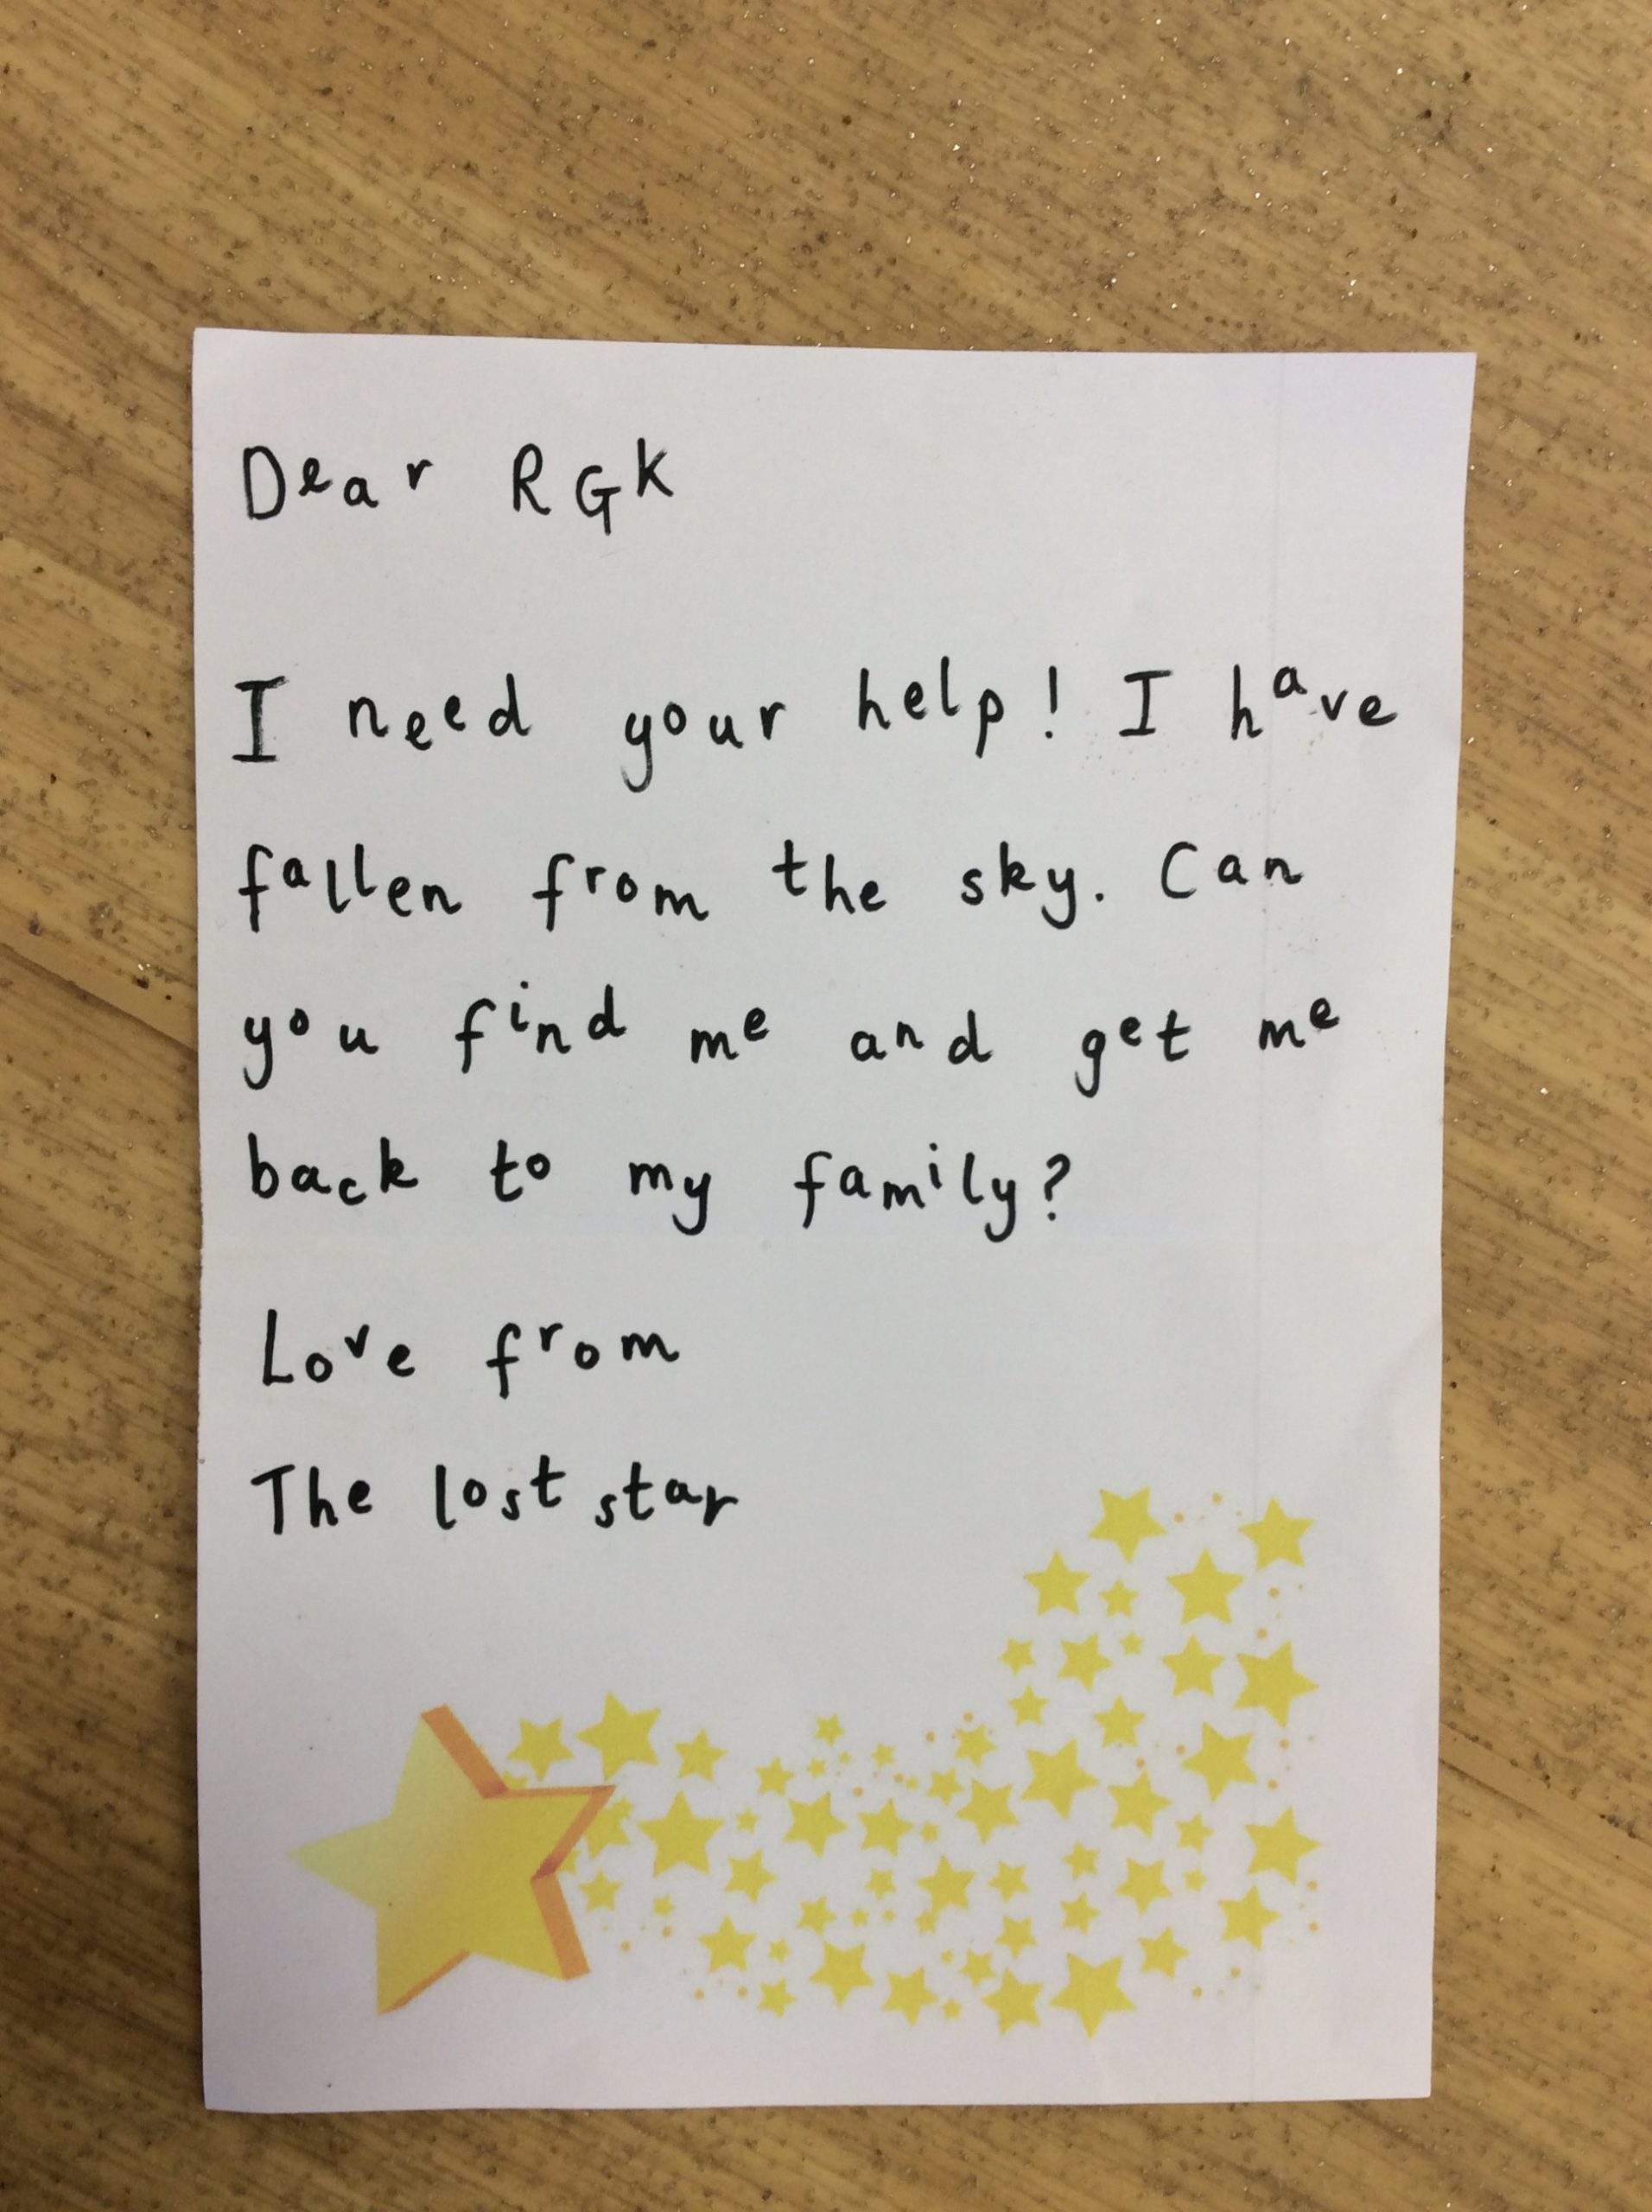 Dear RGK
I need your help! I have
fallen from the sky. Can
you find me and get me
back to my family?
Love from
The lost star